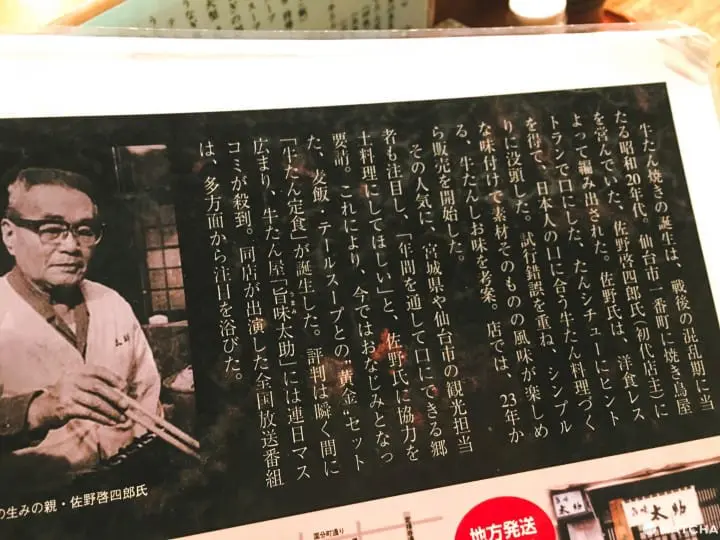 牛たん焼きの誕生は、戦後の混乱期に当
たる昭和20年代。仙台市一番町に焼き鳥屋
を営んでいた、佐野啓四郎氏(初代店主)に
よって編み出された。佐野氏は、洋食レス
トランで口にした、たんシチューにヒント
を得て、日本人の口に合う牛たん料理づく
りに没頭した。試行錯誤を重ね、シンプル
な味付けで素材そのものの風味が楽しめ
る、牛たんしお味を考案。店では、23年か
ら販売を開始した。
その人気に、宮城県や仙台市の観光担当
者も注目し、「年間を通して口にできる郷
土料理にしてほしい」と、佐野氏に協力を
要請。これにより、今ではおなじみとなっ
た、麦飯・テールスープとの"黄金"セット
「牛たん定食」が誕生した。評判は瞬く間に
広まり、牛たん屋「旨味太助」には連日マス
コミが殺到。同店が出演した全国放送番組
は、多方面から注目を浴びた。
の生みの親・佐野啓四郎氏
国分町通り
地方発送
太助
太助